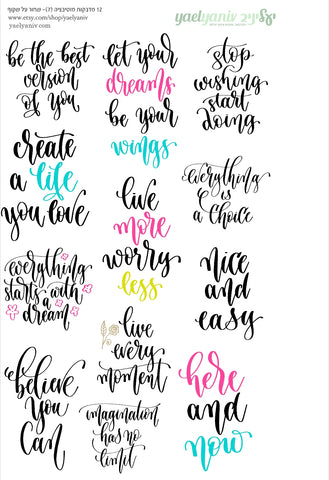 12 מדבקות מוטיבציה (7)- שחור על שקוף
www.etsy.com/shop/yaelyaniv
yaelyaniv.com
יעליניב
yaelyaniv
be the best
version
of you
let your
dreams
be your
wings
stop
wishing
start
doing
create
a life
you love
live
more
worry
less
everything
is
a choice
everything
starts with
a
dream
nice
and
easy
live
every
moment
believe
you
can
imagination
has no
limit
here
and
now